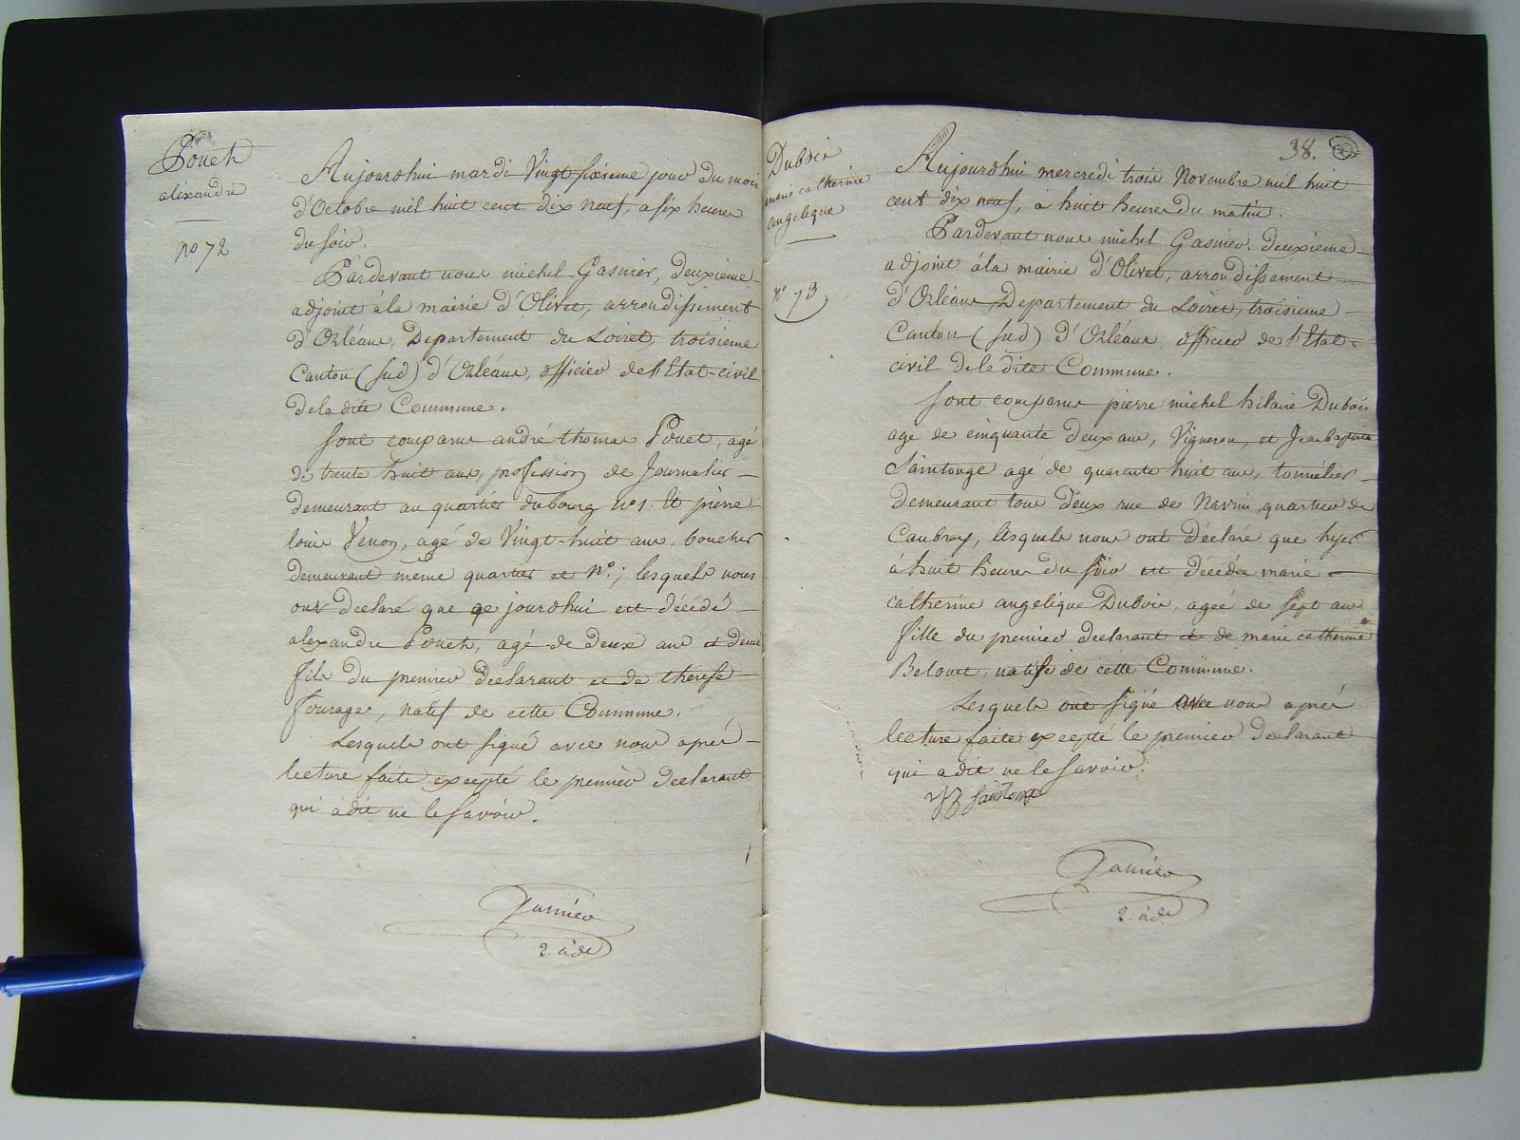 Pouet
alexandre
no 72
Aujourdhui mardi Vingt sixieme jour du mois
d'Octobre mil huit cent dix neuf, a six heures
du soir.
Pardevant nous michel Gasnier, deuxieme
adjoint à la mairie d'Olivet, arrondissement
d'Orléans, Departement du Loiret, troisieme
Canton (sud) d'Orléans, officier de l'Etat-civil
de la dite Commune.
Sont comparus andré thomas Pouet, agé
de trente huit ans, profession de Journalier
demeurant au quartier du bourg no 1. Et pierre
louis Venon, agé de Vingt-huit ans, boucher
demeurant même quartier et No.; lesquels nous
ont declaré que ce jourdhui est décédé
alexandre Pouet, agé de deux ans et demi
fils du premier declarant et de therese
fourage, natif de cette Commune.
Lesquels ont signé avec nous après
lecture faite excepté le premier declarant
qui a dit ne le savoir.
Gasnier
2. ade
38.
Dubois
marie catherine
angelique
no 73
Aujourdhui mercredi trois Novembre mil huit
cent dix neuf, à huit heures du matin.
Pardevant nous michel Gasnier deuxieme
adjoint à la mairie d'Olivet, arrondissement
d'Orléans Departement du Loiret, troisieme
Canton (sud) d'Orléans, officier de l'Etat
civil de la dite Commune.
Sont comparus pierre michel hilaire Dubois
agé de cinquante deux ans, Vigneron, et Jean baptiste
Saintonge agé de quarante huit ans, tonnelier
demeurant tous deux rue de quartier de
Caubray, lesquels nous ont déclaré que hyer
à huit heures du soir est décédée marie
catherine angelique Dubois, agée de sept ans
fille du premier declarant et de marie catherine
natife de cette Commune.
Lesquels ont signé avec nous après
lecture faite excepté le premier declarant
qui a dit ne le savoir.
JB Saintonge
Gasnier
2. ade